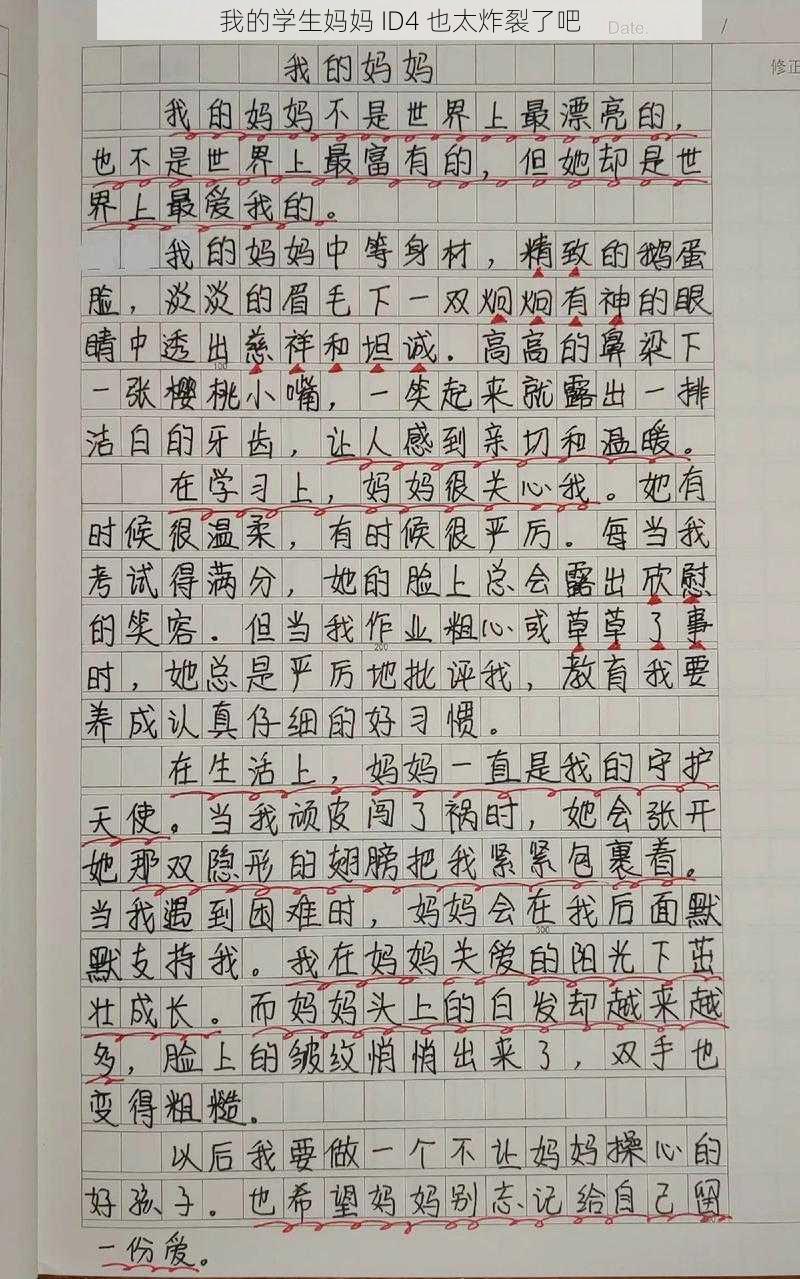 我的学生妈妈 ID4 也太炸裂了吧
Date.
/
修正
我的妈妈
我的妈妈不是世界上最漂亮的，
也不是世界上最富有的，但她却是世
界上最爱我的。
我的妈妈中等身材，精致的鹅蛋
脸，淡淡的眉毛下一双炯炯有神的眼
睛中透出慈祥和坦诚。高高的鼻梁下
100
一张樱桃小嘴，一笑起来就露出一排
洁白的牙齿，让人感到亲切和温暖。
在学习上，妈妈很关心我。她有
时候很温柔，有时候很严厉。每当我
考试得满分，她的脸上总会露出欣慰
的笑容。但当我作业粗心或草草了事
200
时，她总是严厉地批评我，教育我要
养成认真仔细的好习惯。
在生活上，妈妈一直是我的守护
天使。当我顽皮闯了祸时，她会张开
她那双隐形的翅膀把我紧紧包裹着。
当我遇到困难时，妈妈会在我后面默
300
默支持我。我在妈妈关爱的阳光下茁
壮成长。而妈妈头上的白发却越来越
多，脸上的皱纹悄悄出来了，双手也
变得粗糙。
以后我要做一个不让妈妈操心的
好孩子。也希望妈妈别忘记给自己留
一份爱。